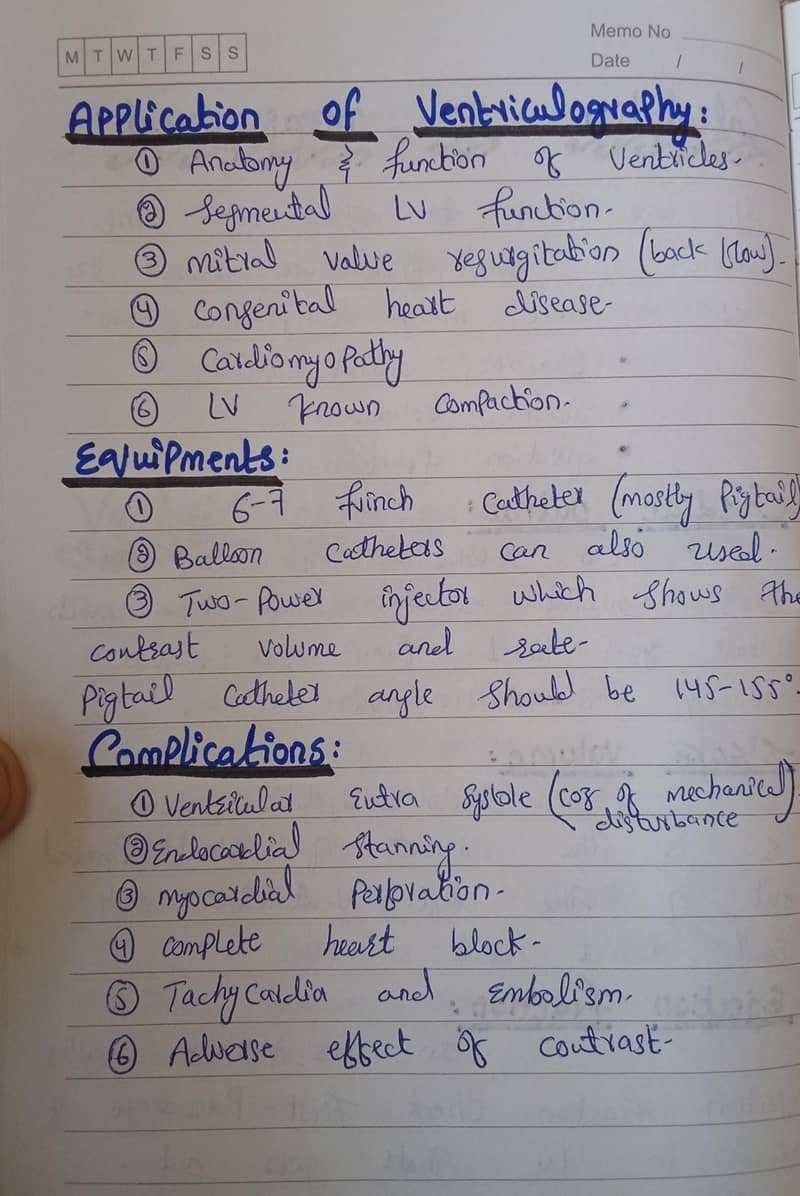 M T W T F S S
Memo No
Date / /
Application of Ventriculography:
① Anatomy & function of Ventricles.
② Segmental LV function.
③ Mitral valve regurgitation (back flow).
④ Congenital heart disease.
⑤ Cardiomyopathy
⑥ LV known Compaction.
Equipments:
① 6-7 frinch Catheter (mostly Pigtail)
② Balloon Catheters can also used.
③ Two-Power injector which shows the
contrast volume and rate.
Pigtail Catheter angle should be 145-155°.
Complications:
① Ventricular Extra Systole (coz of mechanical)
disturbance
② Endocardial Stanning.
③ Myocardial Perforation.
④ Complete heart block.
⑤ Tachycardia and Embolism.
⑥ Adverse effect of contrast.